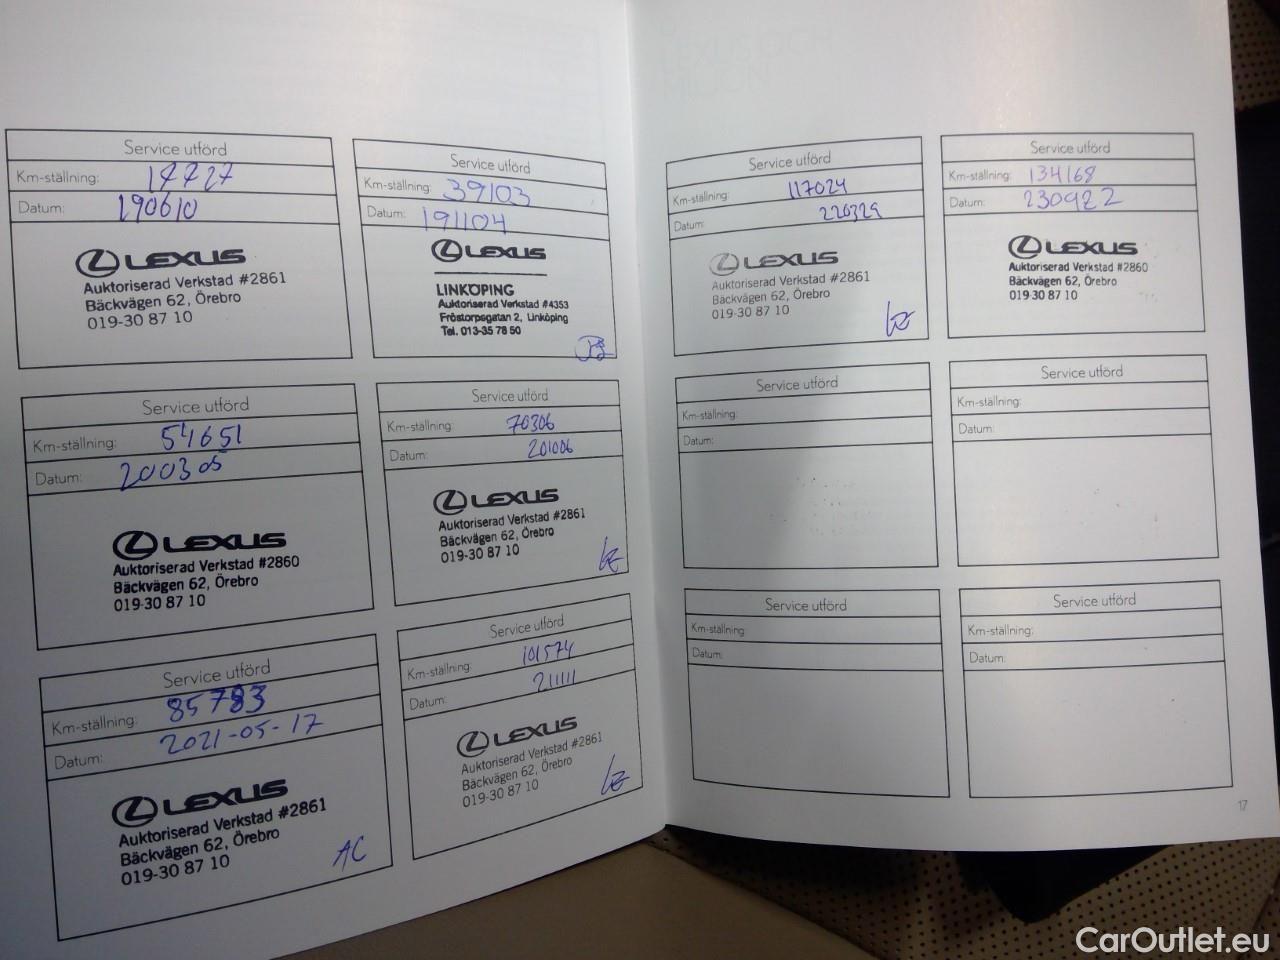 Service utförd
Km-ställning: 17727
Datum: 190610
LEXUS
Auktoriserad Verkstad #2861
Bäckvägen 62, Örebro
019-30 87 10
Service utförd
Km-ställning: 39103
Datum: 191104
LEXUS
LINKÖPING
Auktoriserad Verkstad #4353
Fröstorpsgatan 2, Linköping
Tel. 013-35 78 50
Service utförd
Km-ställning: 54651
Datum: 200305
LEXUS
Auktoriserad Verkstad #2860
Bäckvägen 62, Örebro
019-30 87 10
Service utförd
Km-ställning: 70306
Datum: 201006
LEXUS
Auktoriserad Verkstad #2861
Bäckvägen 62, Örebro
019-30 87 10
Service utförd
Km-ställning: 85783
Datum: 2021-05-17
LEXUS
Auktoriserad Verkstad #2861
Bäckvägen 62, Örebro
019-30 87 10
AC
Service utförd
Km-ställning: 101574
Datum: 211111
LEXUS
Auktoriserad Verkstad #2861
Bäckvägen 62, Örebro
019-30 87 10
Service utförd
Km-ställning: 117024
Datum: 220329
LEXUS
Auktoriserad Verkstad #2861
Bäckvägen 62, Örebro
019-30 87 10
Service utförd
Km-ställning: 134168
Datum: 230922
LEXUS
Auktoriserad Verkstad #2860
Bäckvägen 62, Örebro
019-30 87 10
Service utförd
Km-ställning:
Datum:
Service utförd
Km-ställning:
Datum:
Service utförd
Km-ställning:
Datum:
Service utförd
Km-ställning:
Datum:
17
CarOutlet.eu